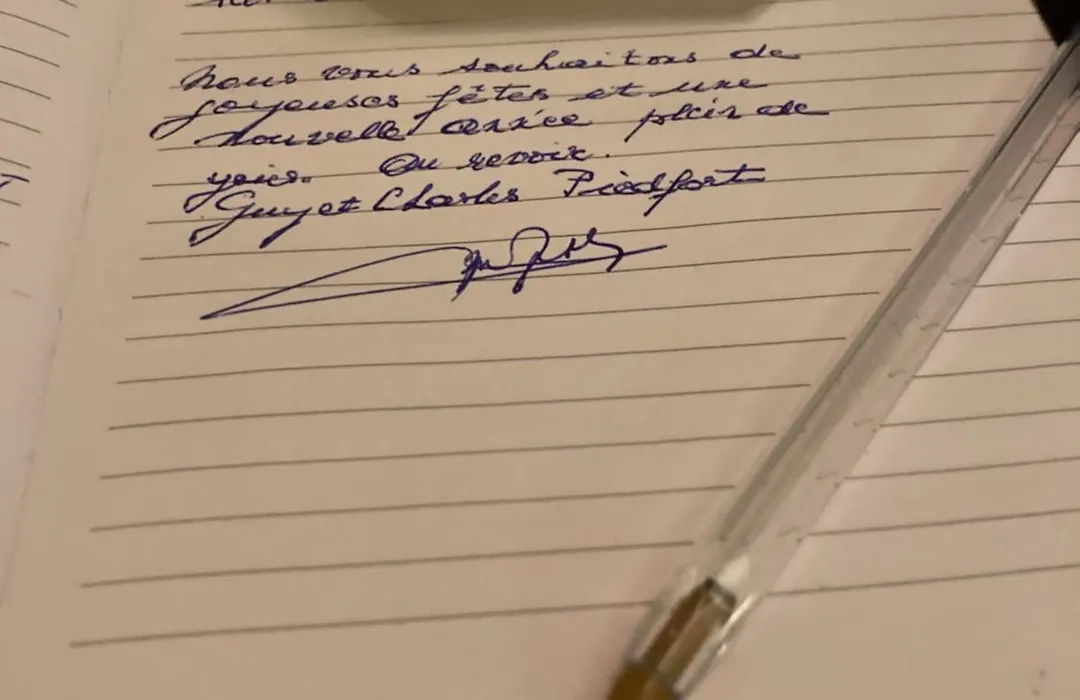 nous vous souhaitons de
joyeuses fêtes et une
nouvelle année plein de
yoies. Au revoir.
Guy et Charles Piedfort